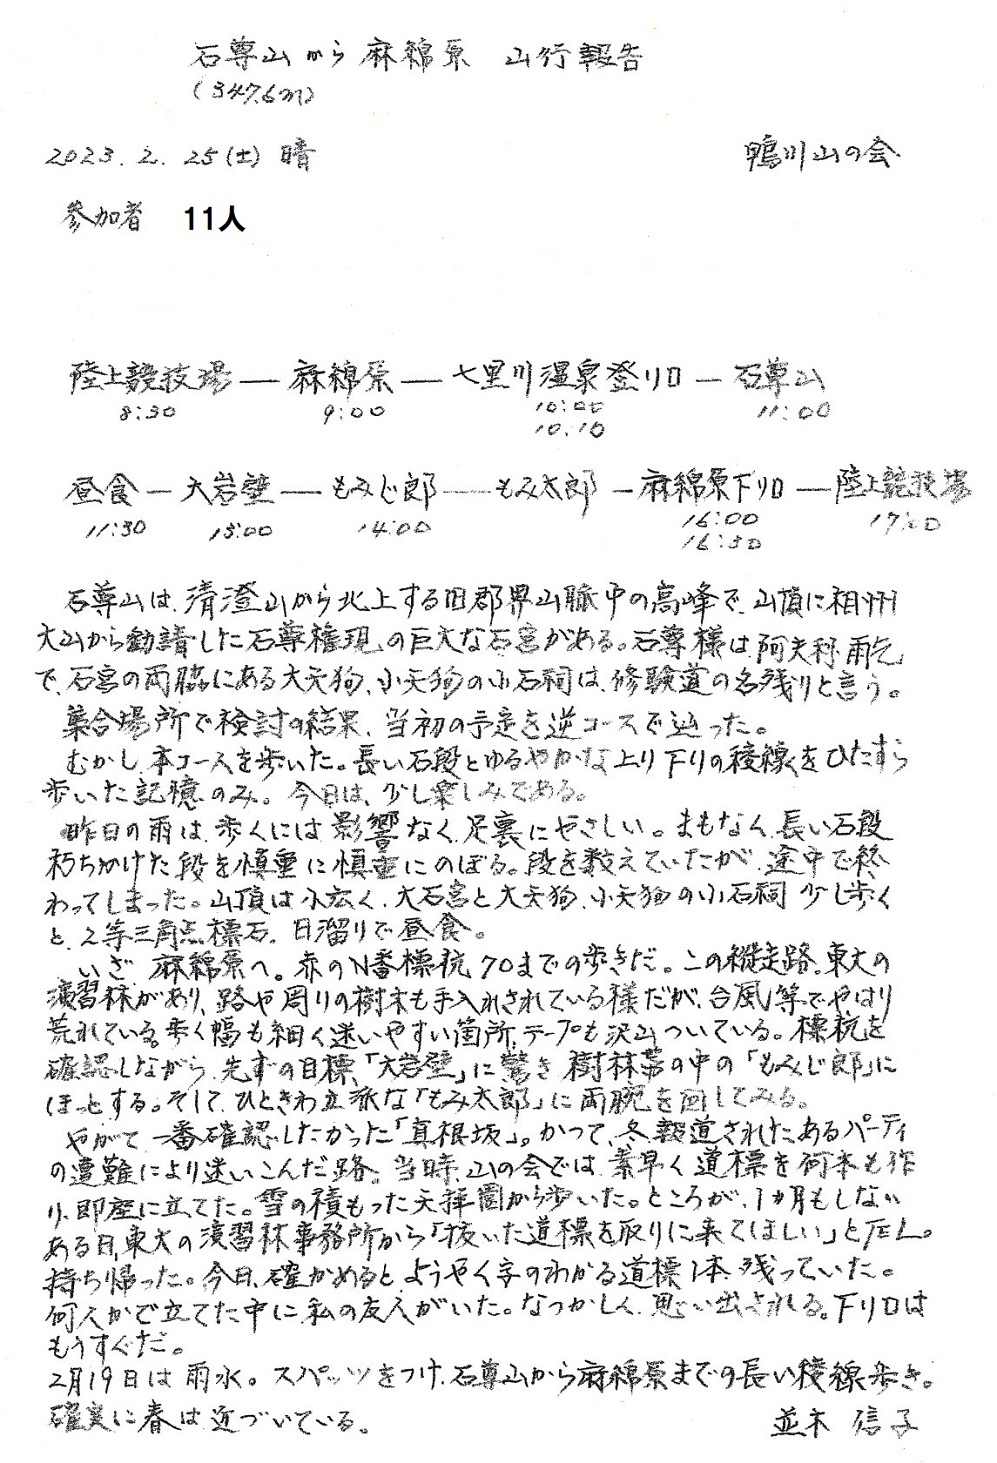 石尊山から麻綿原 山行報告
(347.6m)
2023.2.25(土) 晴 鴨川山の会
参加者 11人
陸上競技場 — 麻綿原 — 七里川温泉登り口 — 石尊山
8:30 9:00 10:00 11:00
10:10
昼食 — 大岩壁 — もみじ郎 — もみ太郎 — 麻綿原下り口 — 陸上競技場
11:30 13:00 14:00 16:00 17:00
16:30
石尊山は、清澄山から北上する旧郡界山脈中の高峰で、山頂に相州
大山から勧請した石尊権現の巨大な石宮がある。石尊様は、阿夫利、雨乞
で、石宮の両脇にある大天狗、小天狗の小石祠は、修験道の名残りと言う。
集合場所で検討の結果、当初の予定を逆コースで辿った。
むかし、本コースを歩いた。長い石段とゆるやかな上り下りの稜線をひたすら
歩いた記憶のみ。今日は、少し楽しみである。
昨日の雨は、歩くには影響なく、足裏にやさしい。まもなく、長い石段
朽ちかけた段を慎重に慎重にのぼる。段を数えていたが、途中で終
わってしまった。山頂は小広く、大石宮と大天狗、小天狗の小石祠 少し歩く
と、2等三角点標石、日溜りで昼食。
いざ 麻綿原へ。赤のN番標杭70までの歩きだ。この縦走路、東大の
演習林があり、路や周りの樹木も手入れされている様だが、台風等でやはり
荒れている。歩く幅も細く迷いやすい箇所、テープも沢山ついている。標杭を
確認しながら、先ずの目標、「大岩壁」に驚き、樹林帯の中の「もみじ郎」に
ほっとする。そして、ひときわ立派な「もみ太郎」に両腕を回してみる。
やがて、一番確認したかった「真根坂」。かつて、冬、報道されたあるパーティ
の遭難により迷いこんだ路。当時、山の会では、素早く道標を何本も作
り、即座に立てた。雪の積もった天拝園から歩いた。ところが、1か月もしない
ある日、東大の演習林事務所から「抜いた道標を取りに来てほしい」とTEL。
持ち帰った。今日、確かめると、ようやく字のわかる道標1本、残っていた。
何人かで立てた中に私の友人がいた。なつかしく、思い出される。下り口は
もうすぐだ。
2月19日は雨水。スパッツをつけ、石尊山から麻綿原までの長い稜線歩き。
確実に春は近づいている。 並木 信子